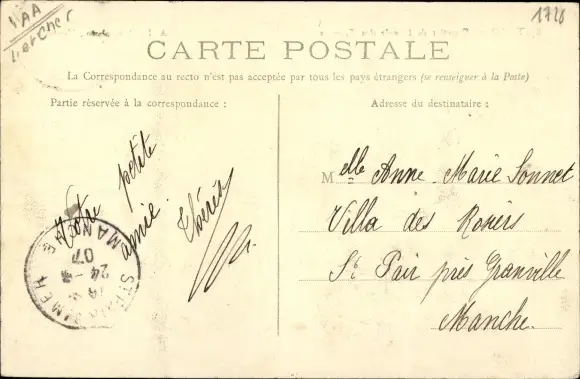 1728
CARTE POSTALE
La Correspondance au recto n'est pas acceptée par tous les pays étrangers (se renseigner à la Poste)
Partie réservée à la correspondance :
Votre petite
amie
Thérèse
MANCHE
07
24 - 
ST PAIR
MER
Adresse du destinataire :
Melle Anne-Marie Sonnet
Villa des Rosiers
St Pair près Granville
Manche.